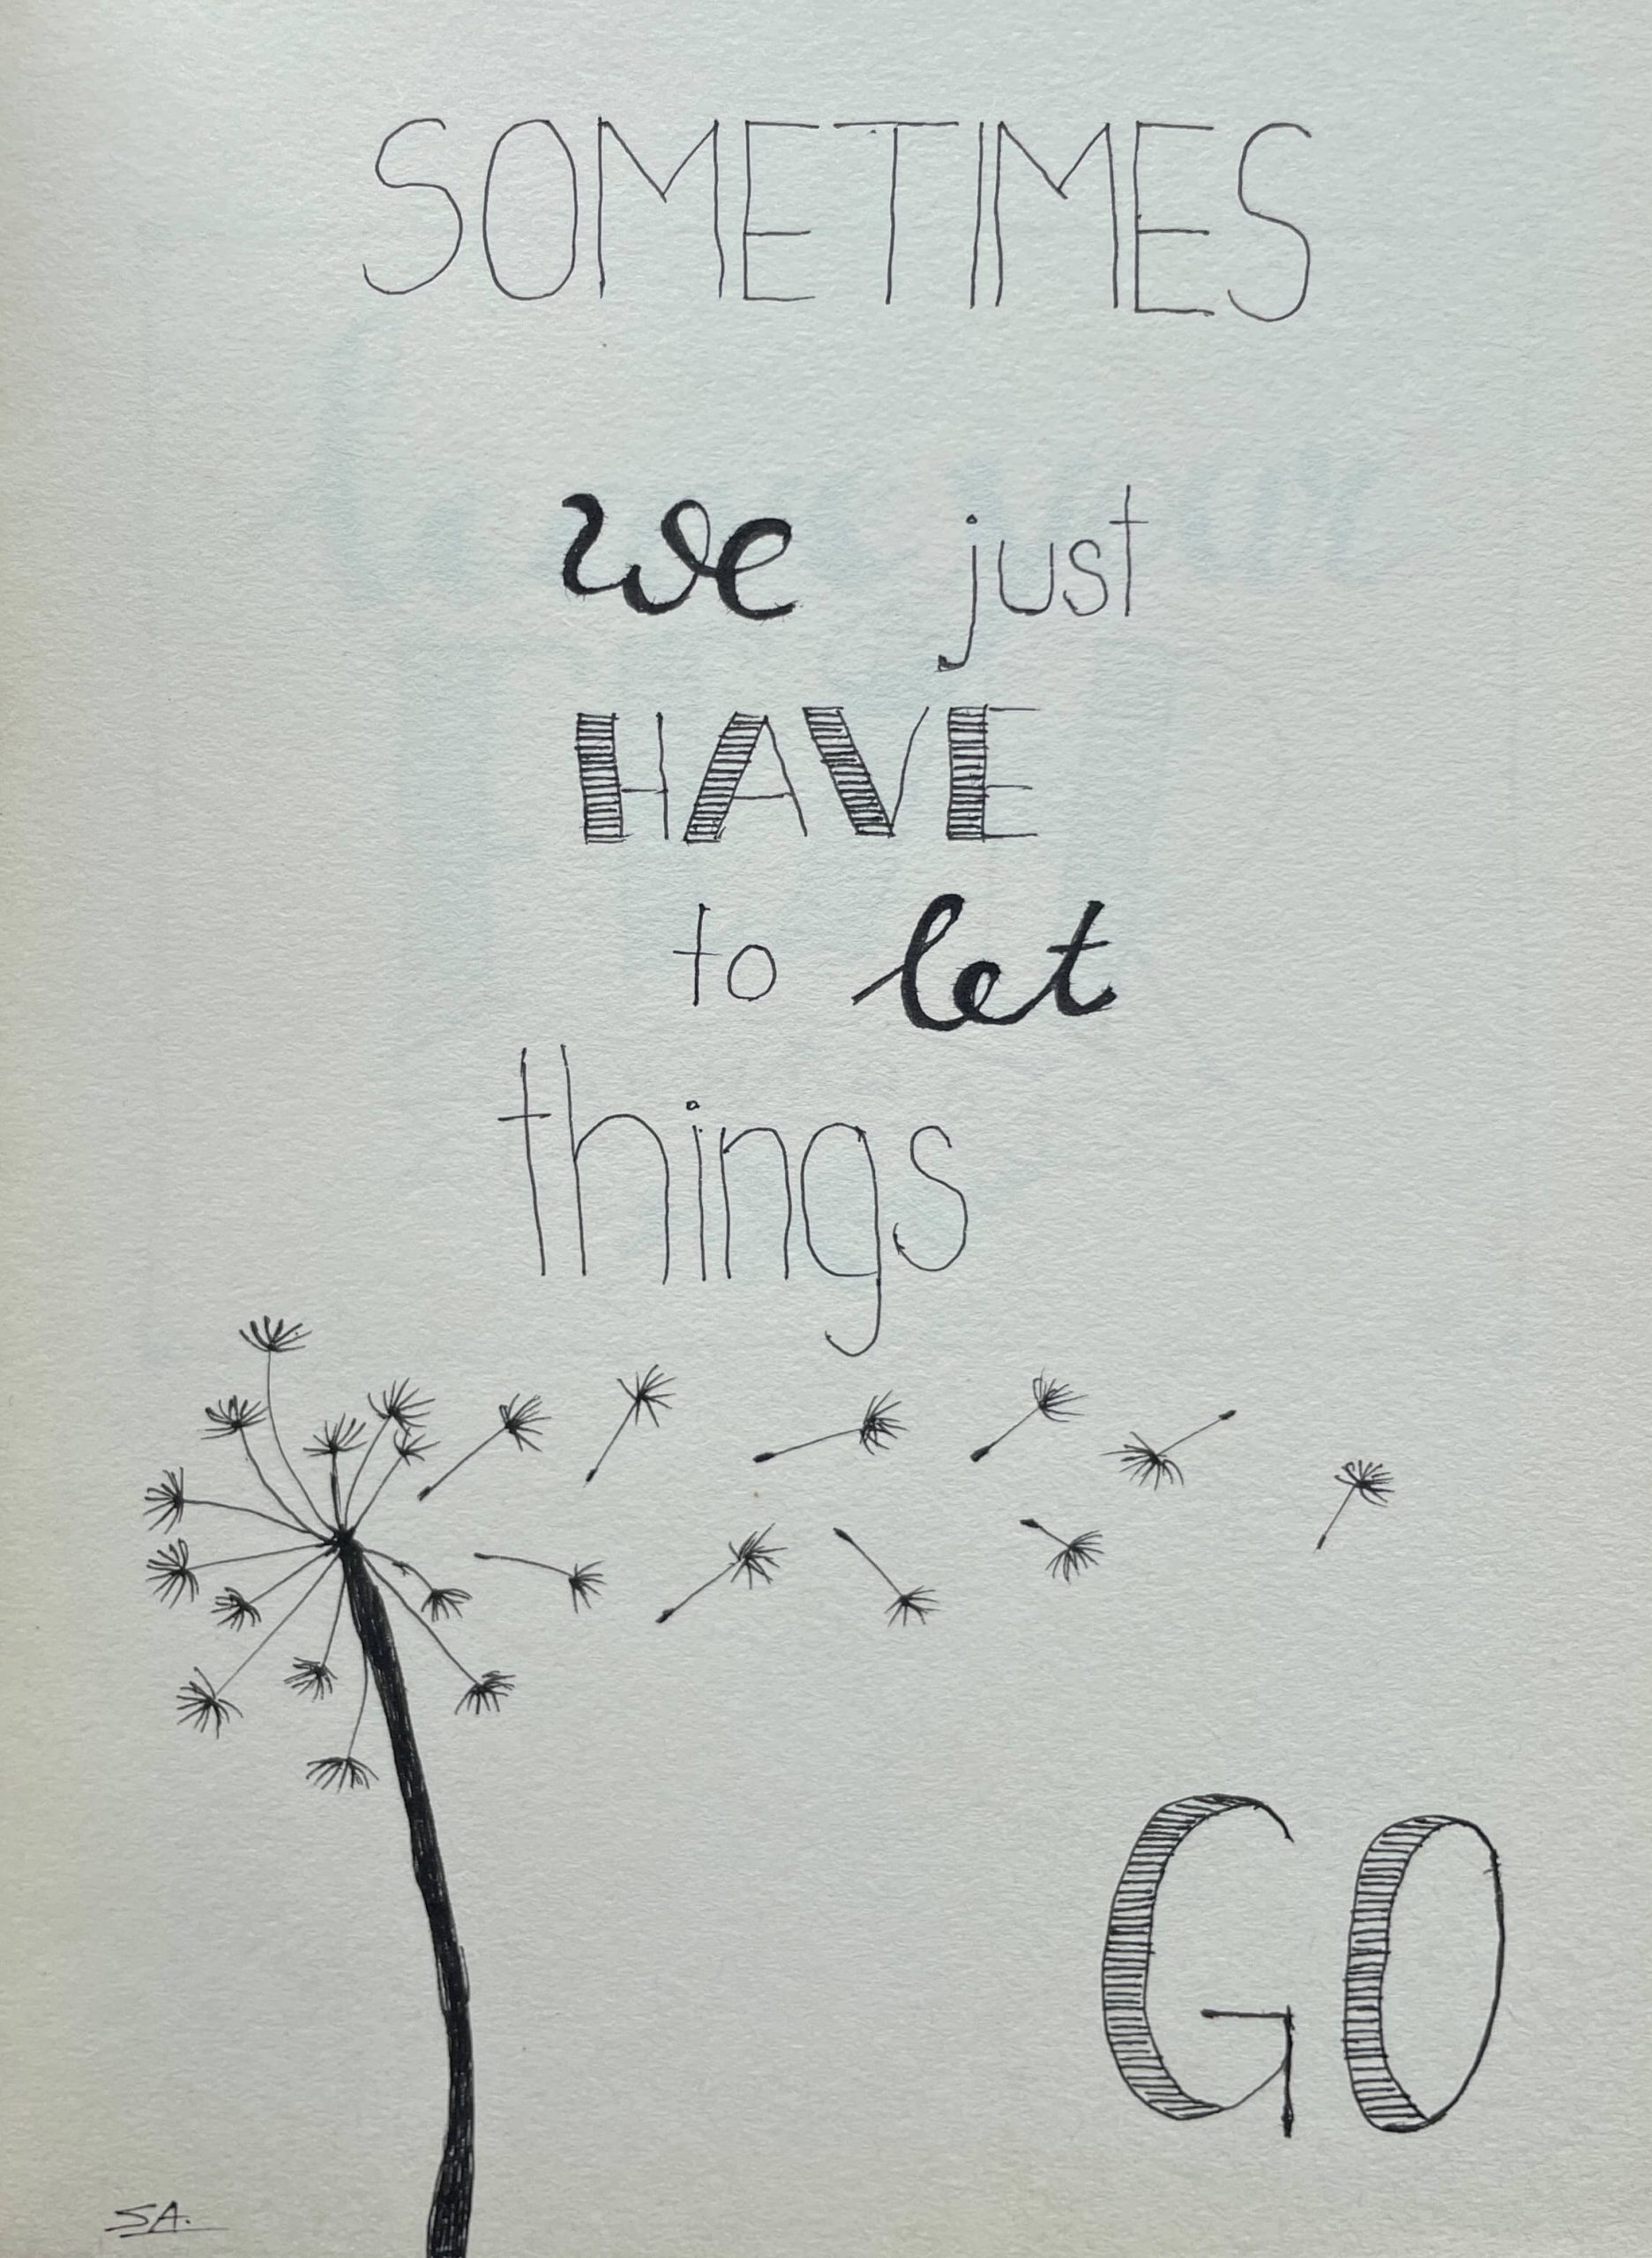 SOMETIMES
we just
HAVE
to let
things
GO
SA.